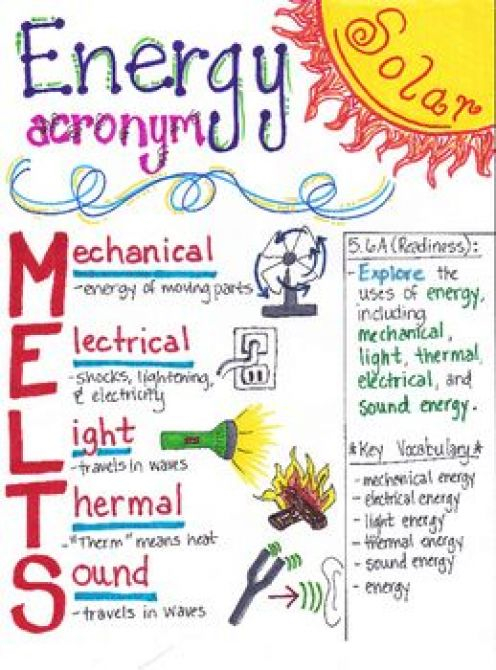 Energy
acronym
Solar
Mechanical
-energy of moving parts
Electrical
-shocks, lightening,
& electricity
Light
-travels in waves
Thermal
-"Therm" means heat
Sound
-travels in waves
5.6A (Readiness):
-Explore the
uses of energy,
including
mechanical,
light, thermal,
electrical, and
sound energy.
*Key Vocabulary*
-mechanical energy
-electrical energy
-light energy
-thermal energy
-sound energy
-energy